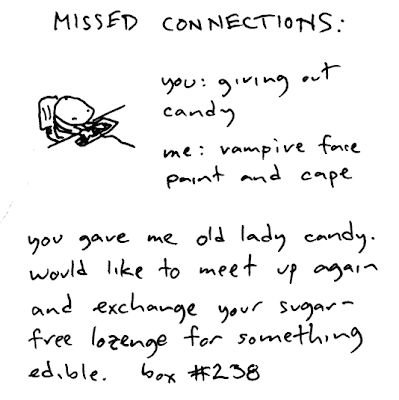 MISSED CONNECTIONS:
you: giving out
candy
me: vampire face
paint and cape
you gave me old lady candy.
would like to meet up again
and exchange your sugar-
free lozenge for something
edible. box #238